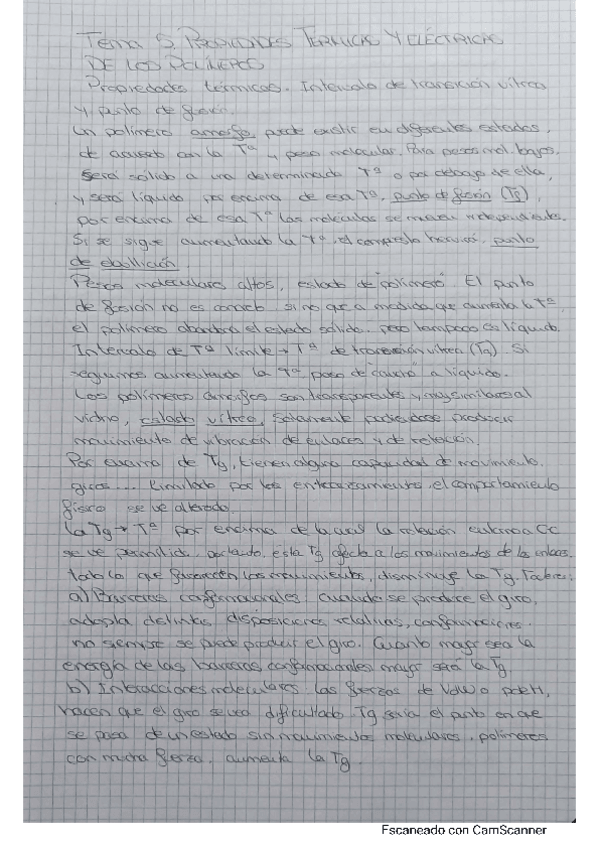 Tema 5. PROPIEDADES TÉRMICAS Y ELÉCTRICAS
DE LOS POLÍMEROS
Propiedades térmicas. Intervalo de transición vítrea
y punto de fusión.
Un polímero amorfo puede existir en diferentes estados,
de acuerdo con la Tª y peso molecular. Para pesos mol. bajos.
Será sólido a una determinada Tª o por debajo de ella,
y será líquido por encima de esa Tª, punto de fusión (Tg),
por encima de esa Tª las moléculas se mueven independiente.
Si se sigue aumentando la Tª, el compuesto hervirá, punto
de ebullición.
Pesos moleculares altos, estado de "polímero". El punto
de fusión no es conocido, si no que a medida que aumenta la Tª
el polímero abandona el estado sólido, pero tampoco es líquido.
Intervalo de Tª límite → Tª de transición vítrea (Tg). Si
seguimos aumentando la Tª pasa de caucho a líquido.
Los polímeros amorfos son transparentes y muy similares al
vidrio, estado vítreo, Solamente pudiéndose producir
movimiento de vibración de enlaces y de rotación.
Por encima de Tg, tienen alguna capacidad de movimiento,
giros... Limitado por los entrecruzamientos, el comportamiento
físico se ve alterado.
La Tg → Tª por encima de la cual la rotación entorno a CC
se ve permitida, por tanto, esta Tg afecta a los movimientos de los enlaces,
todo lo que favorecen los movimientos, disminuye la Tg. Factores:
a) Barreras conformacionales: cuando se produce el giro,
adopta distintas disposiciones relativas, conformaciones.
no siempre se puede producir el giro. Cuanto mayor sea la
energía de las barreras conformacionales mayor será la Tg
b) Interacciones moleculares: las fuerzas de VdW o pdeH,
hacen que el giro se vea dificultado. Tg sería el punto en que
se pasa de un estado sin movimientos moleculares. polímeros
con mucha fuerza, aumenta la Tg.
Escaneado con CamScanner